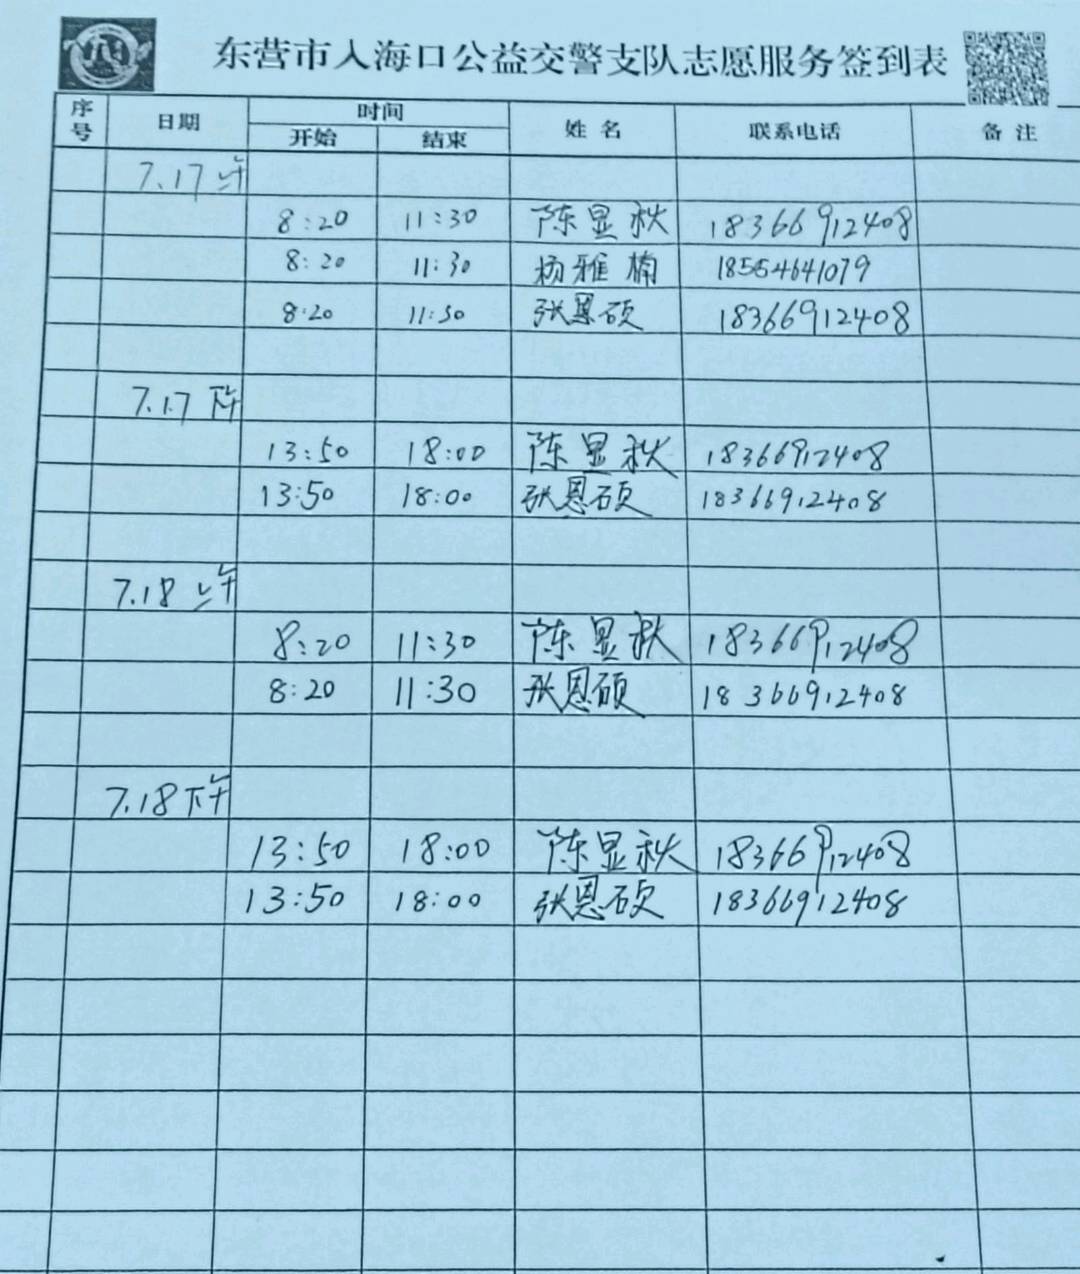 东营市入海口公益交警支队志愿服务签到表
序号 日期 时间 姓名 联系电话 备注
开始 结束
7.17 上午
8:20 11:30 陈显秋 18366912408
8:20 11:30 杨雅楠 18554641079
8:20 11:30 张恩硕 18366912408
7.17 下午
13:50 18:00 陈显秋 18366912408
13:50 18:00 张恩硕 18366912408
7.18 上午
8:20 11:30 陈显秋 18366912408
8:20 11:30 张恩硕 18366912408
7.18 下午
13:50 18:00 陈显秋 18366912408
13:50 18:00 张恩硕 18366912408